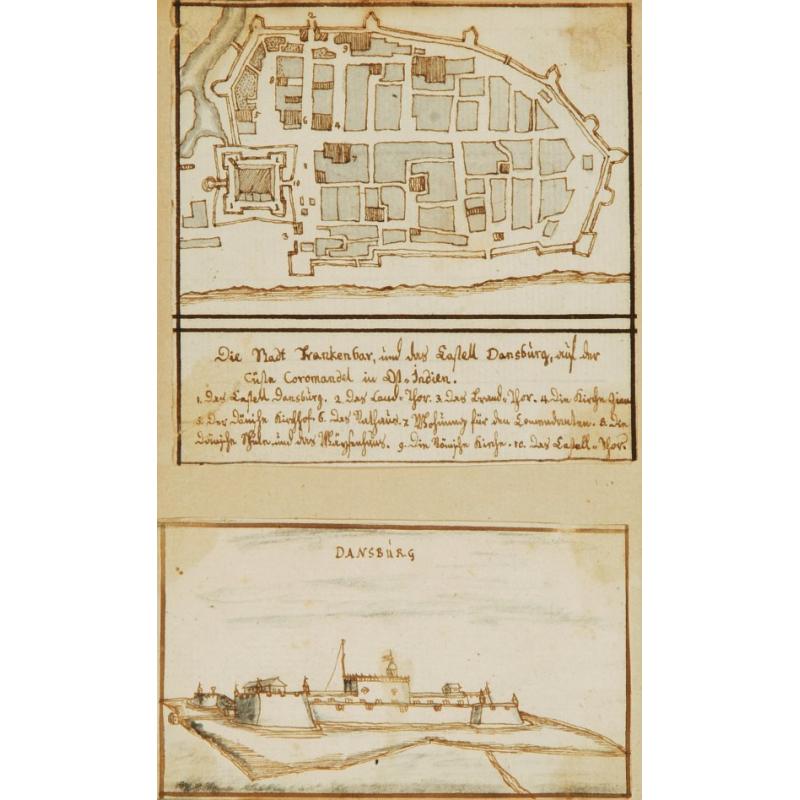 Die Stadt Trankenbar, und das Castell Dansburg, auf der
Cüste Coromandel in Ost-Indien.
1. das Castell Dansburg. 2. das Land-Thor. 3. das Strand-Thor. 4. die Kirche Zion
5. Der dänische Kirchhof 6. das Rathaus. 7 Wohnung für den Commendanten. 8. die
dänische Schule und das Waysenhaus. 9. die Römische Kirche. 10. das Castell-Thor.
DANSBURG